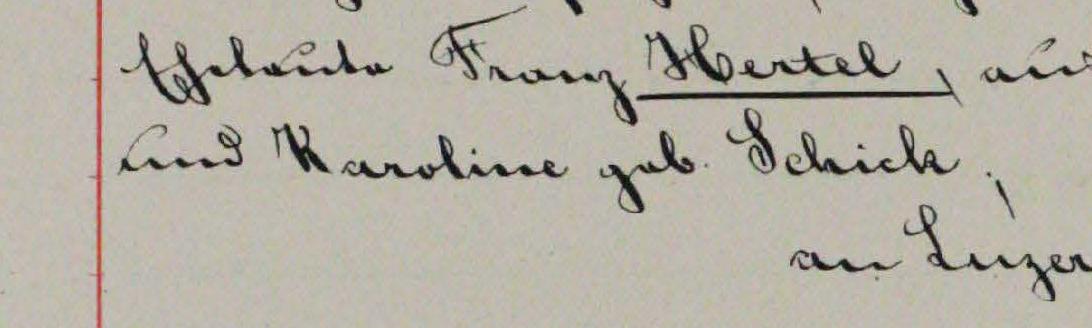 Eheleute Franz Hertel, aus
und Karoline geb. Schick,
an Luzer